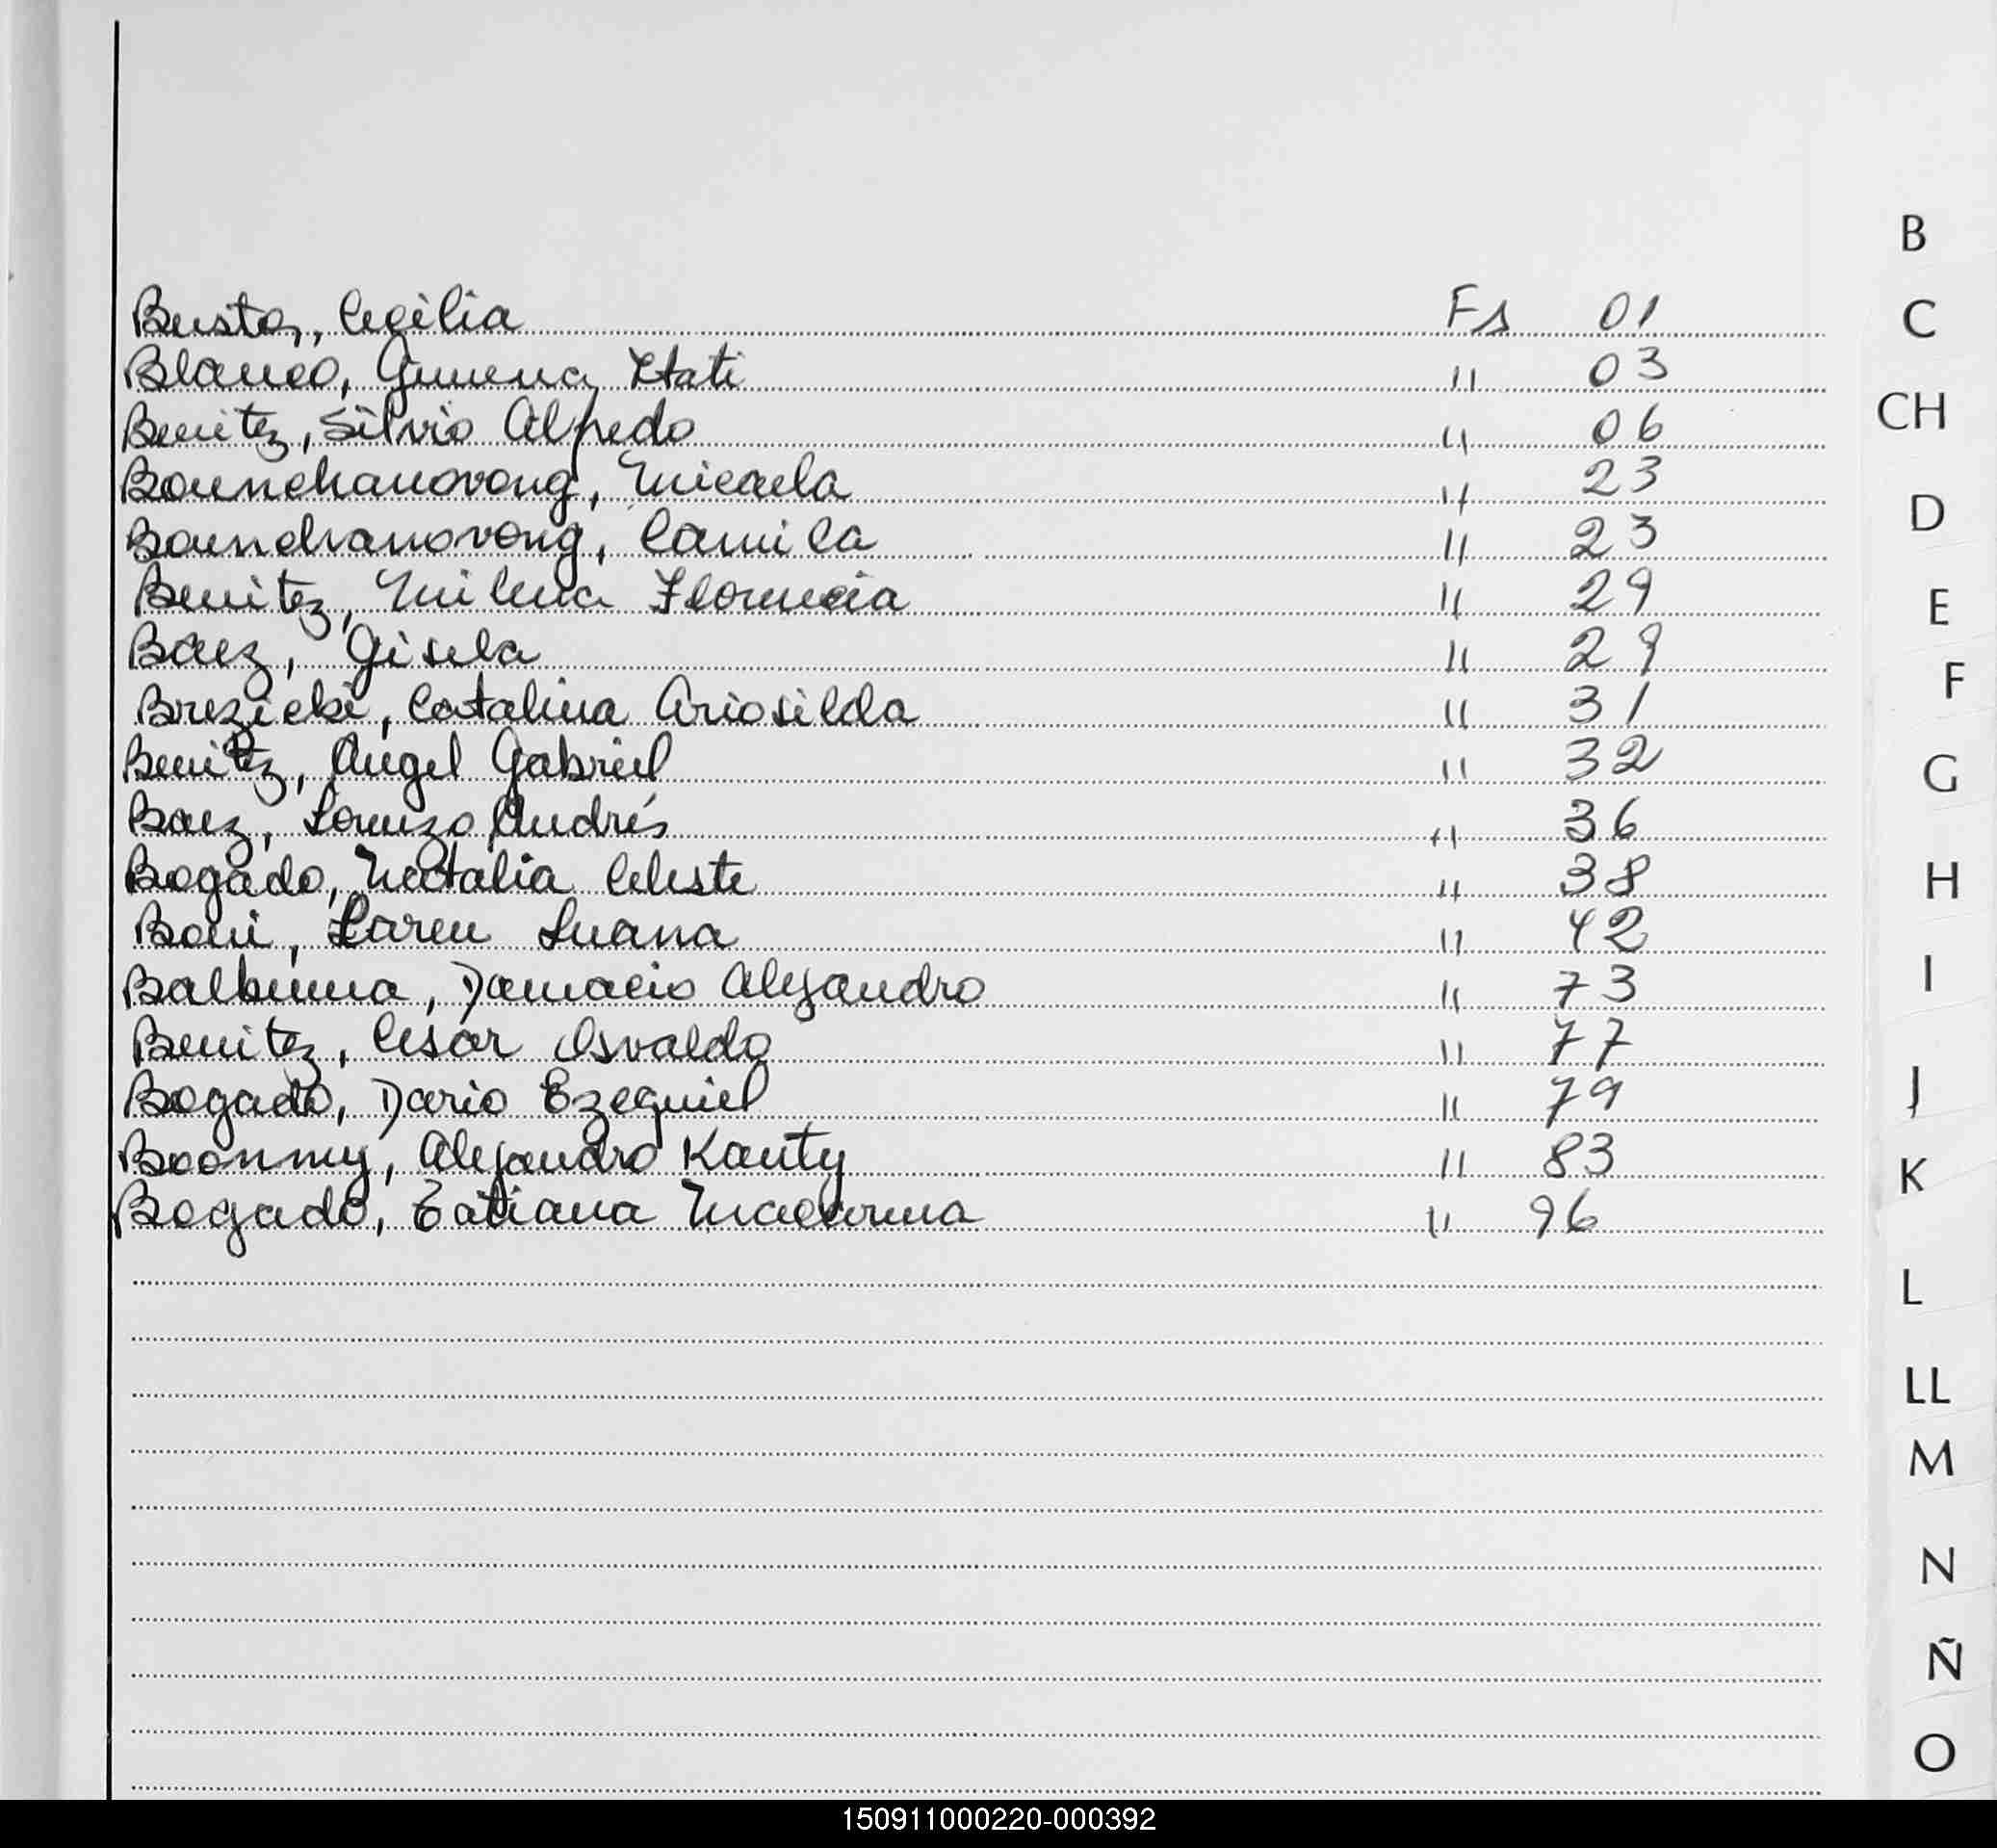 Bustos, Cecilia Fs 01
Blanco, Gimena Itati " 03
Benitez, Silvio Alfredo " 06
Bounchanovong, Micaela " 23
Bounchanovong, Camila " 23
Benitez, Milena Florencia " 29
Baez, Gisela " 29
Brezicki, Catalina Ariosilda " 31
Benitez, Angel Gabriel " 32
Baez, Lorenzo Andrés " 36
Bogado, Natalia Celeste " 38
Boni, Karen Luana " 42
Damacio Alejandro " 73
Benitez, Cesar Osvaldo " 77
Bogado, Dario Ezequiel " 79
Boonmy, Alejandro Kanty " 83
Bogado, Tatiana Macarena " 96
B
C
CH
D
E
F
G
H
I
J
K
L
LL
M
N
Ñ
O
150911000220-000392